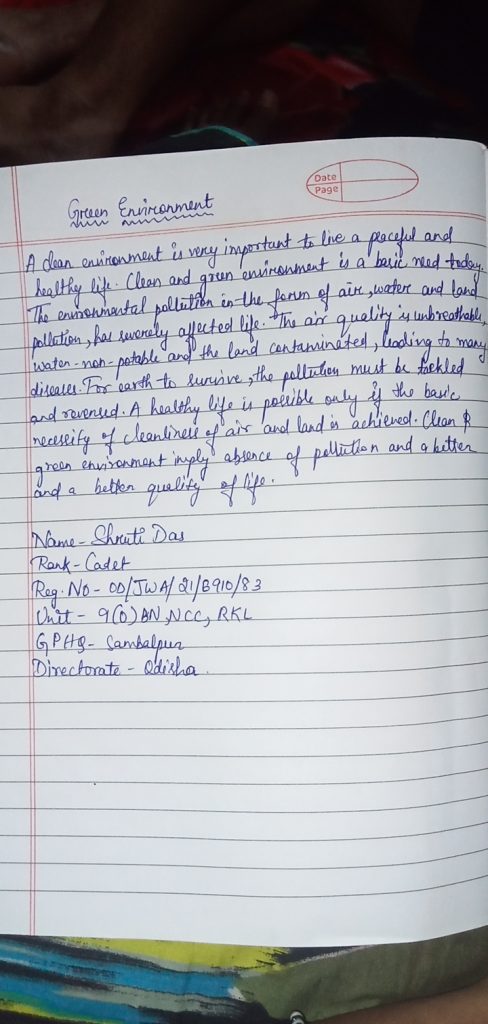 Date
Page
Green Environment
A clean environment is very important to live a peaceful and
healthy life. Clean and green environment is a basic need today.
The environmental pollution in the form of air, water and land
pollution, has severely affected life. The air quality is unbreathable,
water-non-potable and the land contaminated, leading to many
diseases. For earth to survive, the pollution must be tackled
and reversed. A healthy life is possible only if the basic
necessity of cleanliness of air and land is achieved. Clean &
green environment imply absence of pollution and a better
and a better quality of life.
Name - Shruti Das
Rank - Cadet
Reg. No - OD/JWA/21/B910/83
Unit - 9(O) BN, NCC, RKL
GPHQ - Sambalpur
Directorate - Odisha.